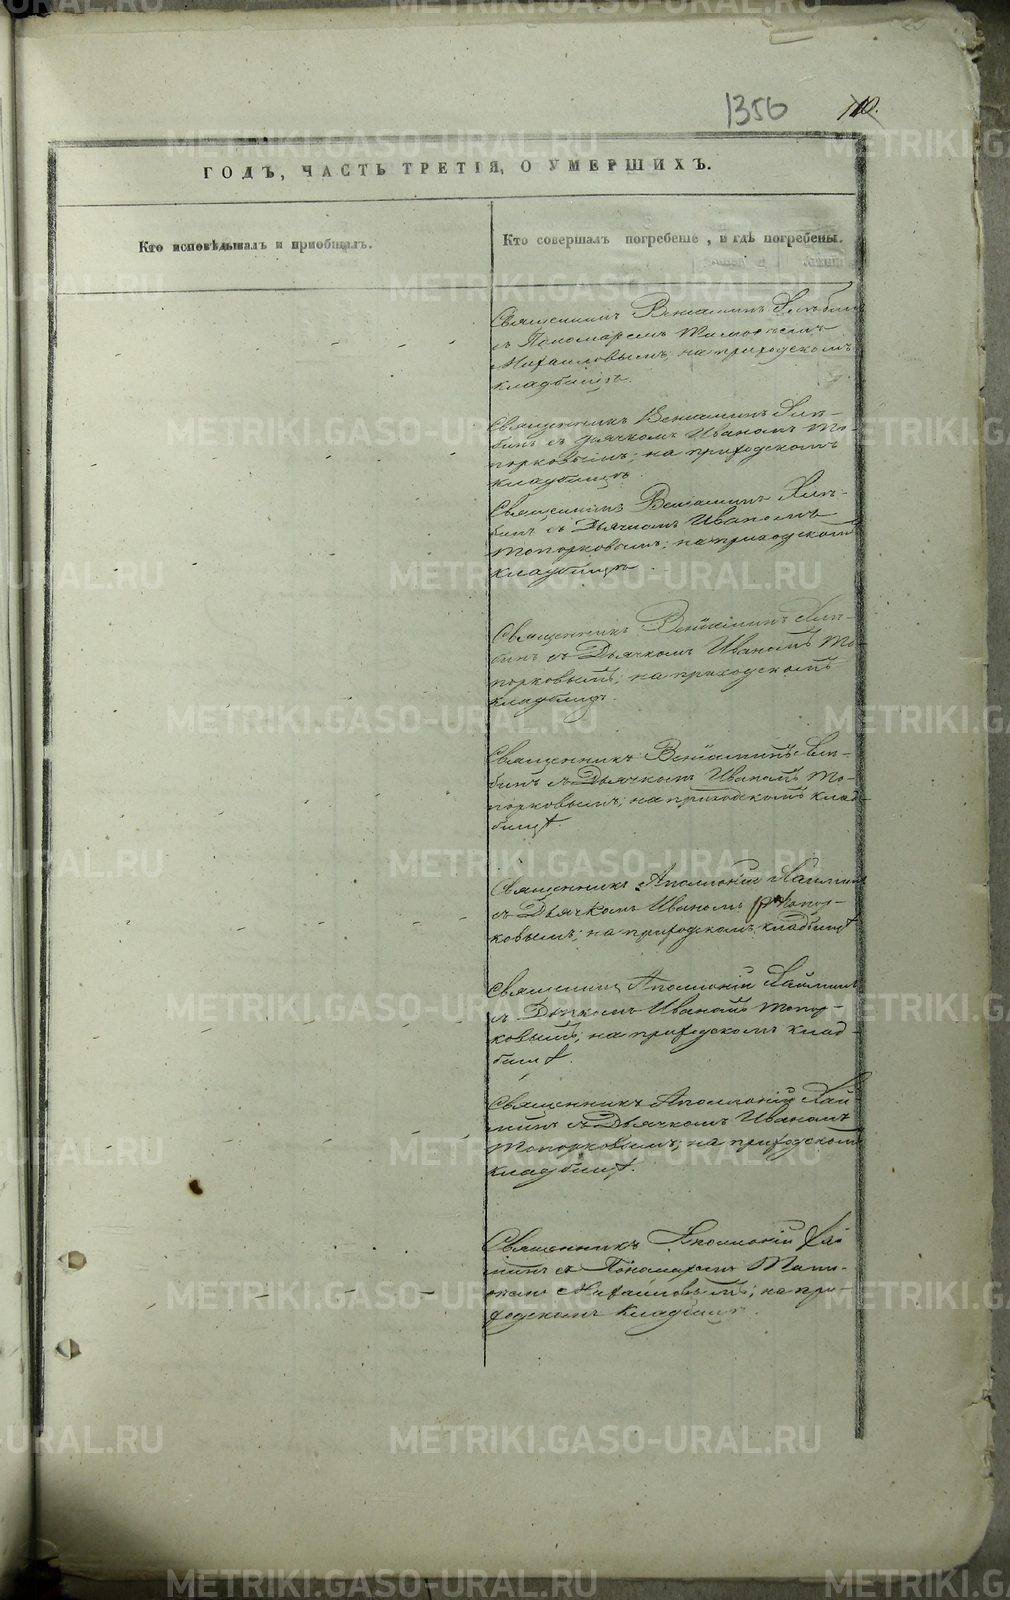 1356
110.
ГОДЪ, ЧАСТЬ ТРЕТІЯ, О УМЕРШИХЪ.
Кто исповѣдывалъ и приобщалъ.
Кто совершалъ погребеніе, и гдѣ погребены.
Священникъ Веніаминъ
съ Пономаремъ
Михаиловымъ; на приходскомъ
кладбищѣ.
Священникъ Веніаминъ Хлѣ-
бинъ съ дьячкомъ Иваномъ То-
порковымъ; на приходскомъ
кладбищѣ.
Священникъ Веніаминъ Хлѣ-
бинъ съ Дьячкомъ Иваномъ
Топорковымъ; на приходскомъ
кладбищѣ.
Священникъ Веніаминъ Хлѣ-
бинъ съ Дьячкомъ Иваномъ То-
порковымъ; на приходскомъ
кладбищѣ.
Священникъ Веніаминъ Хлѣ-
бинъ съ Дьячкомъ Иваномъ То-
порковымъ; на приходскомъ клад-
бищѣ.
Священникъ Аполлоній
съ Дьячкомъ Иваномъ Топор-
ковымъ; на приходскомъ кладбищѣ
Священникъ Аполлоній
съ Дьячкомъ Иваномъ Топор-
ковымъ; на приходскомъ клад-
бищѣ.
Священникъ Аполлоній
съ Дьячкомъ Иваномъ
Топорковымъ; на приходскомъ
кладбищѣ.
Священникъ Аполлоній
съ Пономаремъ
Михайловымъ; на при-
ходскомъ кладбищѣ.
METRIKI.GASO-URAL.RU